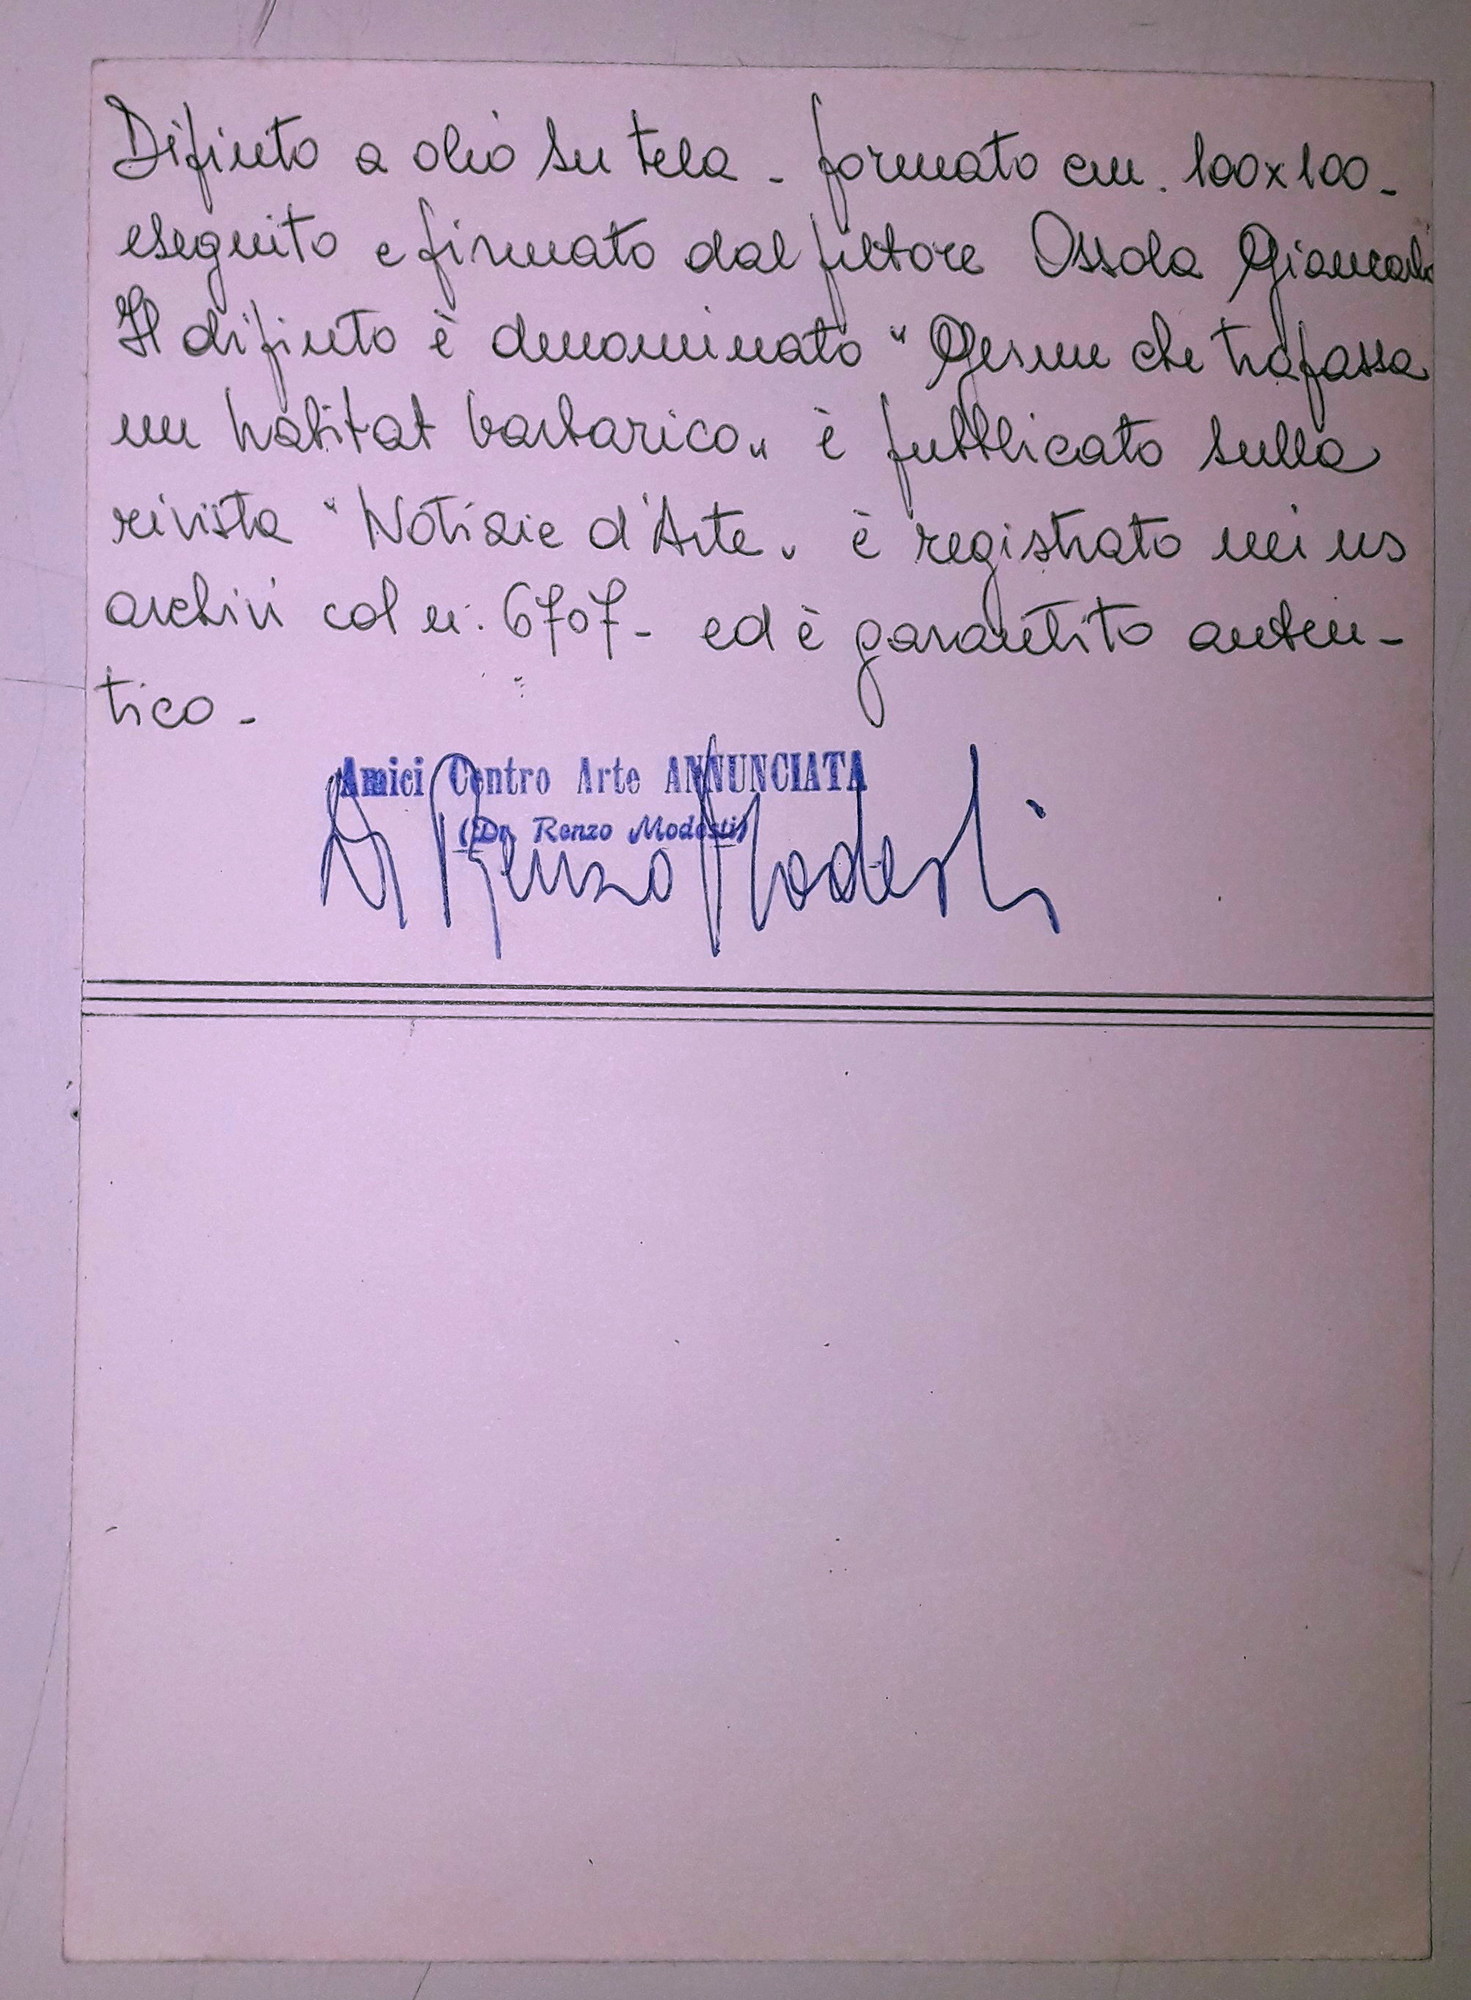 Dipinto a olio su tela - formato cm. 100x100 -
eseguito e firmato dal pittore Ossola Giancarlo
Il dipinto è denominato "Germe che trapassa
un habitat barbarico" è pubblicato sulla
rivista "Notizie d'Arte" è registrato nei ns
archivi col n. 6707 - ed è garantito auten-
tico -
Amici Centro Arte ANNUNCIATA
(Dr. Renzo Modesti)
Dr Renzo Modesti